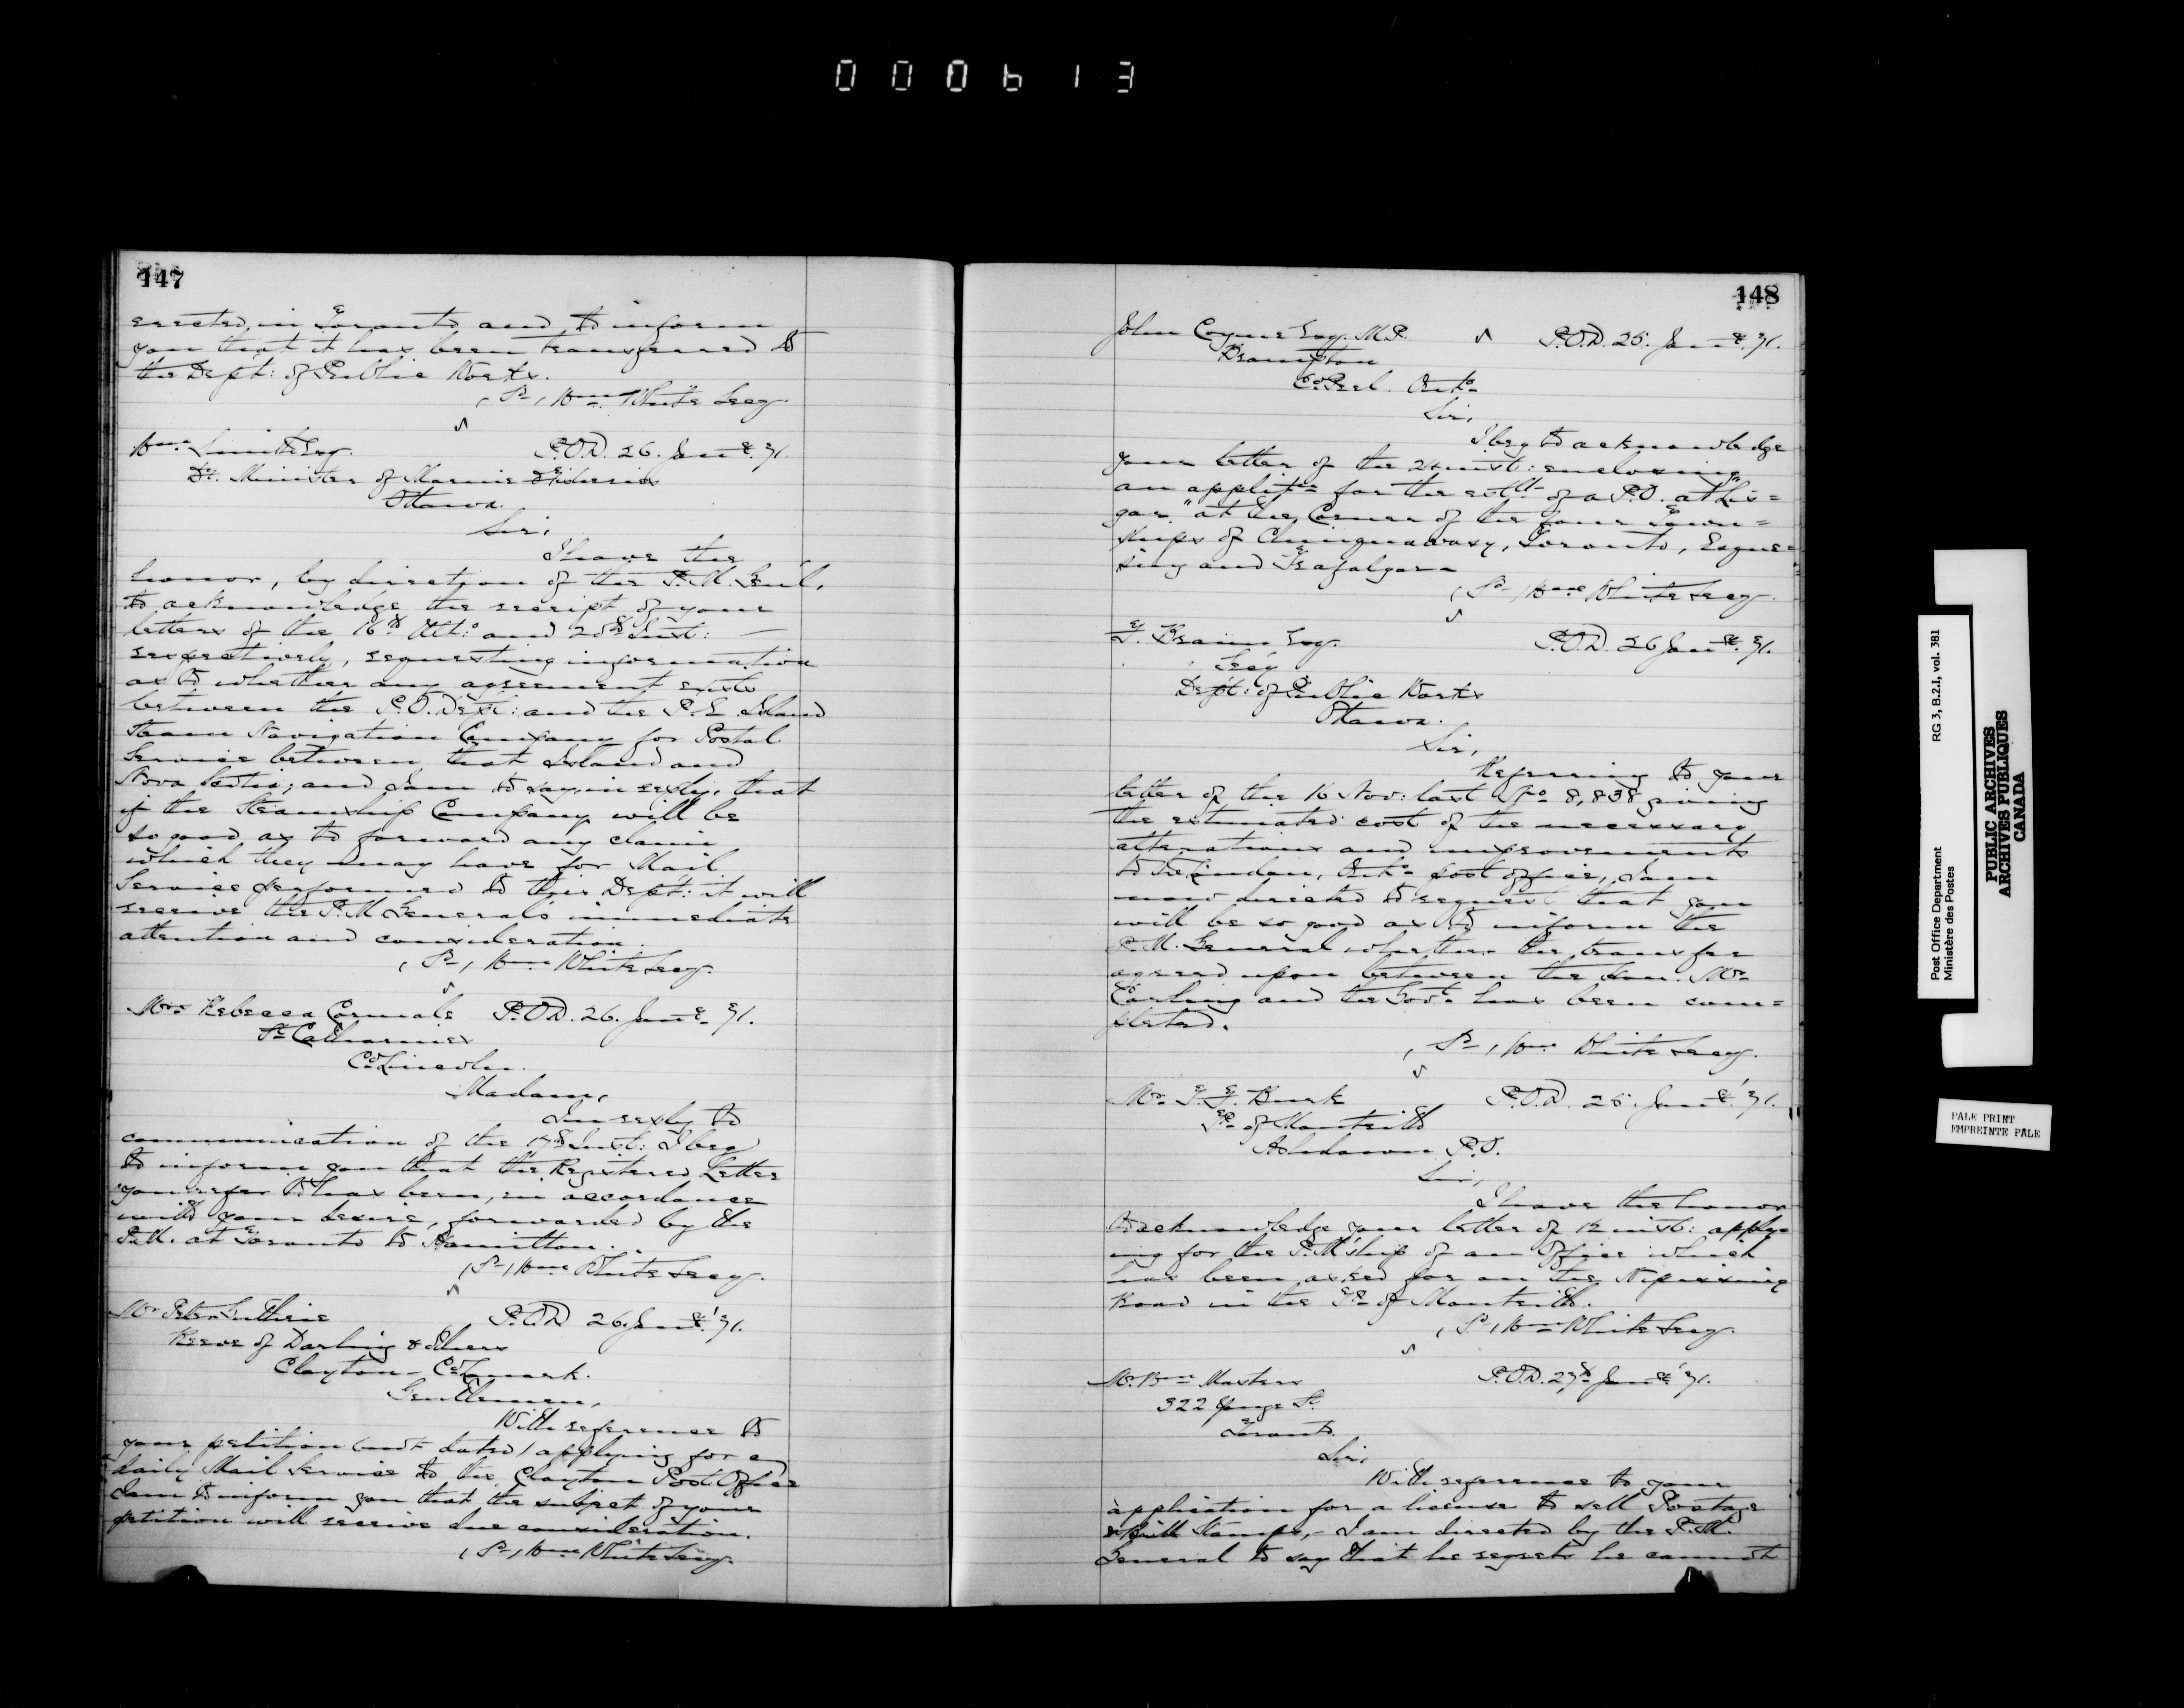 000613
147
erected, in Toronto, and to inform
you that it has been transferred to
the Dept: of Public Works.
(Sd) Wm. White Secy.
Wm. Smith Esq.
P.O.D. 26. Jany. 71.
Dt. Minister of Marine & Fisheries
Ottawa.
Sir,
I have the
honor, by direction of the P.M. Genl,
to acknowledge the receipt of your
letters of the 16th Ult:o and 25th Inst: —
respectively, requesting information
as to whether any agreement exists
between the P.O. Dept: and the P.E. Island
Steam Navigation Company for Postal
Service between that Island and
Nova Scotia; and I am to say, in reply, that
if the Steamship Company will be
so good as to forward any claim
which they may have for Mail
Service performed to this Dept: it will
receive the P.M. Generals immediate
attention and consideration.
(Sd) Wm White Secy.
Mrs Rebecca
P.O.D. 26. Jany 71.
St Catharines
Co Lincoln.
Madam,
In reply to
communication of the 17th Inst: I beg
to inform you that the Registered Letter
you refer to has been, in accordance
with your desire, forwarded by the
P.M. at Toronto to Hamilton.
(Sd) Wm White Secy.
Mr Peter Guthrie
P.O.D 26. Jany. 71.
Reeve of Darling & others
Clayton - Co Lanark.
Gentlemen,
With reference to
your petition (not dated) applying for a
daily Mail Service to the Clayton Post Office
I am to inform you that the subject of your
petition will receive due consideration.
(Sd) Wm White Secy.
148
John Coyne Esq. M.P.
P.O.D. 25. Jany. 71.
Brampton
Co Peel. Onto
Sir,
I beg to acknowledge
your letter of the 24 inst: enclosing
an applitn for the estt of a P.O. at "Lis=
gar" at the Corner of the four Town=
ships of Chinguacousy, Toronto, Esque=
sing and Trafalgar
(Sd) Wm White Secy.
T. Braun Esq.
P.O.D. 26 Jany. 71.
Secy
Dept: of Public Works
Ottawa.
Sir,
Referring to your
letter of the 16 Nov: last No 8,838 giving
the estimated cost of the necessary
alterations and improvements
to the London, Onto post office, I am
now directed to request that you
will be so good as to inform the
P.M. General whether the transfer
agreed upon between the Hon. Mr
Carling and the Govt has been com=
pleted.
(Sd) Wm White Secy.
Mr T. T. Burk
P.O.D. 25. Jany. 71.
Tp of Monteith
Ashdown P.O.
Sir,
I have the honor
to acknowledge your letter of 12 inst: apply=
ing for the P.M'ship of an Office which
has been asked for on the Nipissing
Road in the Tp of Monteith.
(Sd) Wm White Secy.
Mr. Wm Masters
P.O.D. 27th Jany 71.
322 Yonge St.
Toronto.
Sir,
With reference to your
application for a license to sell Postage
& Bill Stamps, - I am directed by the P.M.
General to say that he regrets he cannot
Post Office Department
Ministère des Postes
RG 3, B.2.I, vol. 381
PUBLIC ARCHIVES
ARCHIVES PUBLIQUES
CANADA
PALE PRINT
EMPREINTE PALE